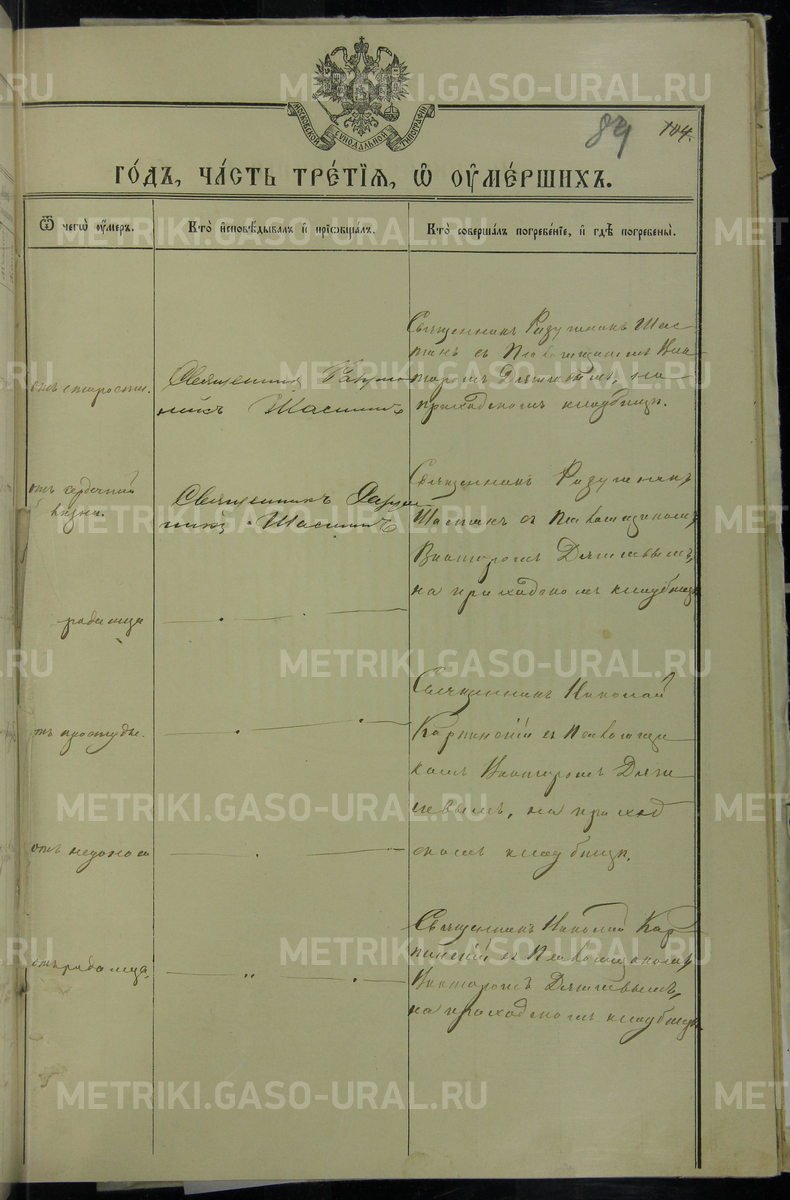 МОСКОВСКОЙ СѴНОДАЛЬНОЙ ТИПОГРАФІИ
84 104.
ГО́ДЪ, ЧА́СТЬ ТРЕ́ТІѦ, Ѡ҆ ОУ҆МЕ́РШИХЪ.
Ѿ чегѡ̀ оу҆́меръ.
Кто̀ и҆сповѣ́дывалъ и҆ прїѡбща́лъ.
Кто̀ соверша́лъ погребе́нїе, и҆ гдѣ̀ погребены̀.
отъ старости.
Священникъ
никъ Шастинъ
Священникъ Шас
тинъ съ Псаломщикомъ Вик
торомъ на
приходскомъ кладбищѣ.
отъ
Священникъ
никъ Шастинъ
Священникъ
Шастинъ съ Псаломщикомъ
Викторомъ
на приходскомъ кладбищѣ
родимца
отъ простуды.
Священникъ Николай
Карпинскій съ Псаломщи
комъ Викторомъ
на приход
скомъ кладбищѣ.
отъ недоноса
отъ родимца.
Священникъ Николай Кар
пинскій съ Псаломщикомъ
Викторомъ
на приходскомъ кладбищѣ
METRIKI.GASO-URAL.RU